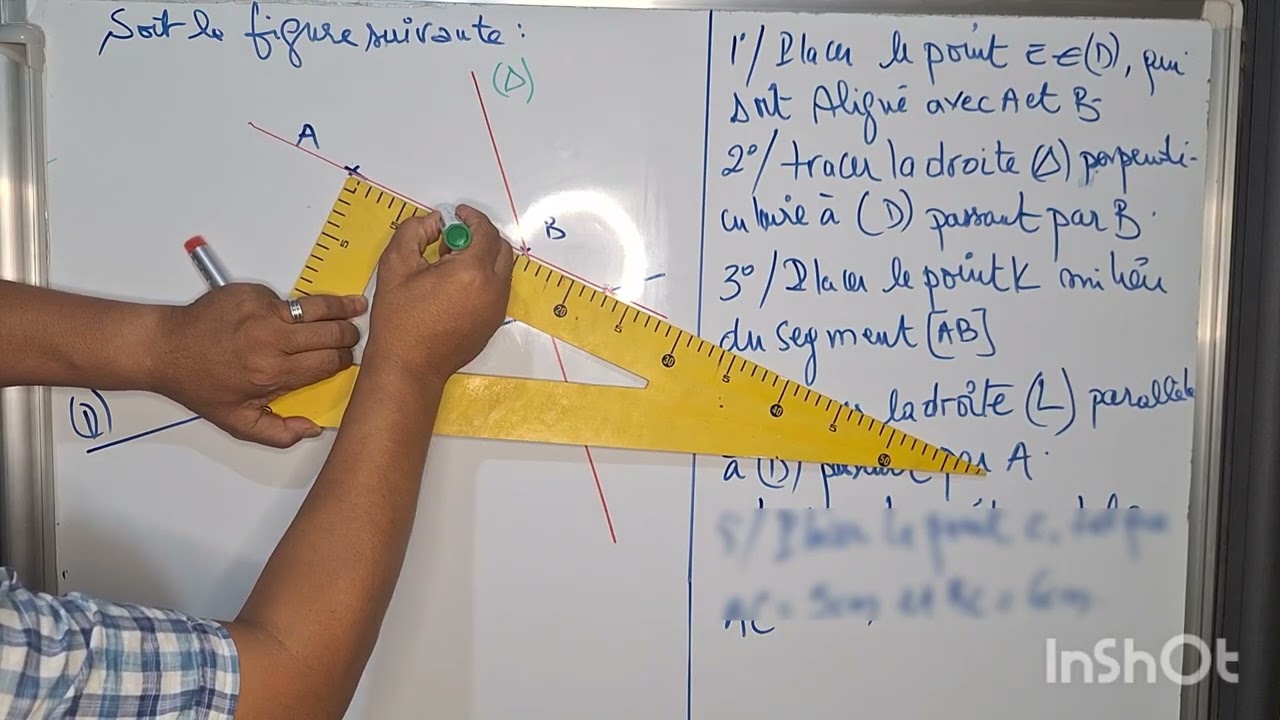 Soit la figure suivante :
(Δ)
A
B
(D)
1°/ Placer le point E ∈ (D), qui
soit Aligné avec A et B
2°/ tracer la droite (Δ) perpendi-
culaire à (D) passant par B.
3°/ Placer le point K milieu
du segment [AB]
la droite (L) parallèle
à (D) par A.
5/ Placer le point C, tel que
AC = 5cm et BC = 6cm
5
5
20
5
30
5
40
5
50
InShOt